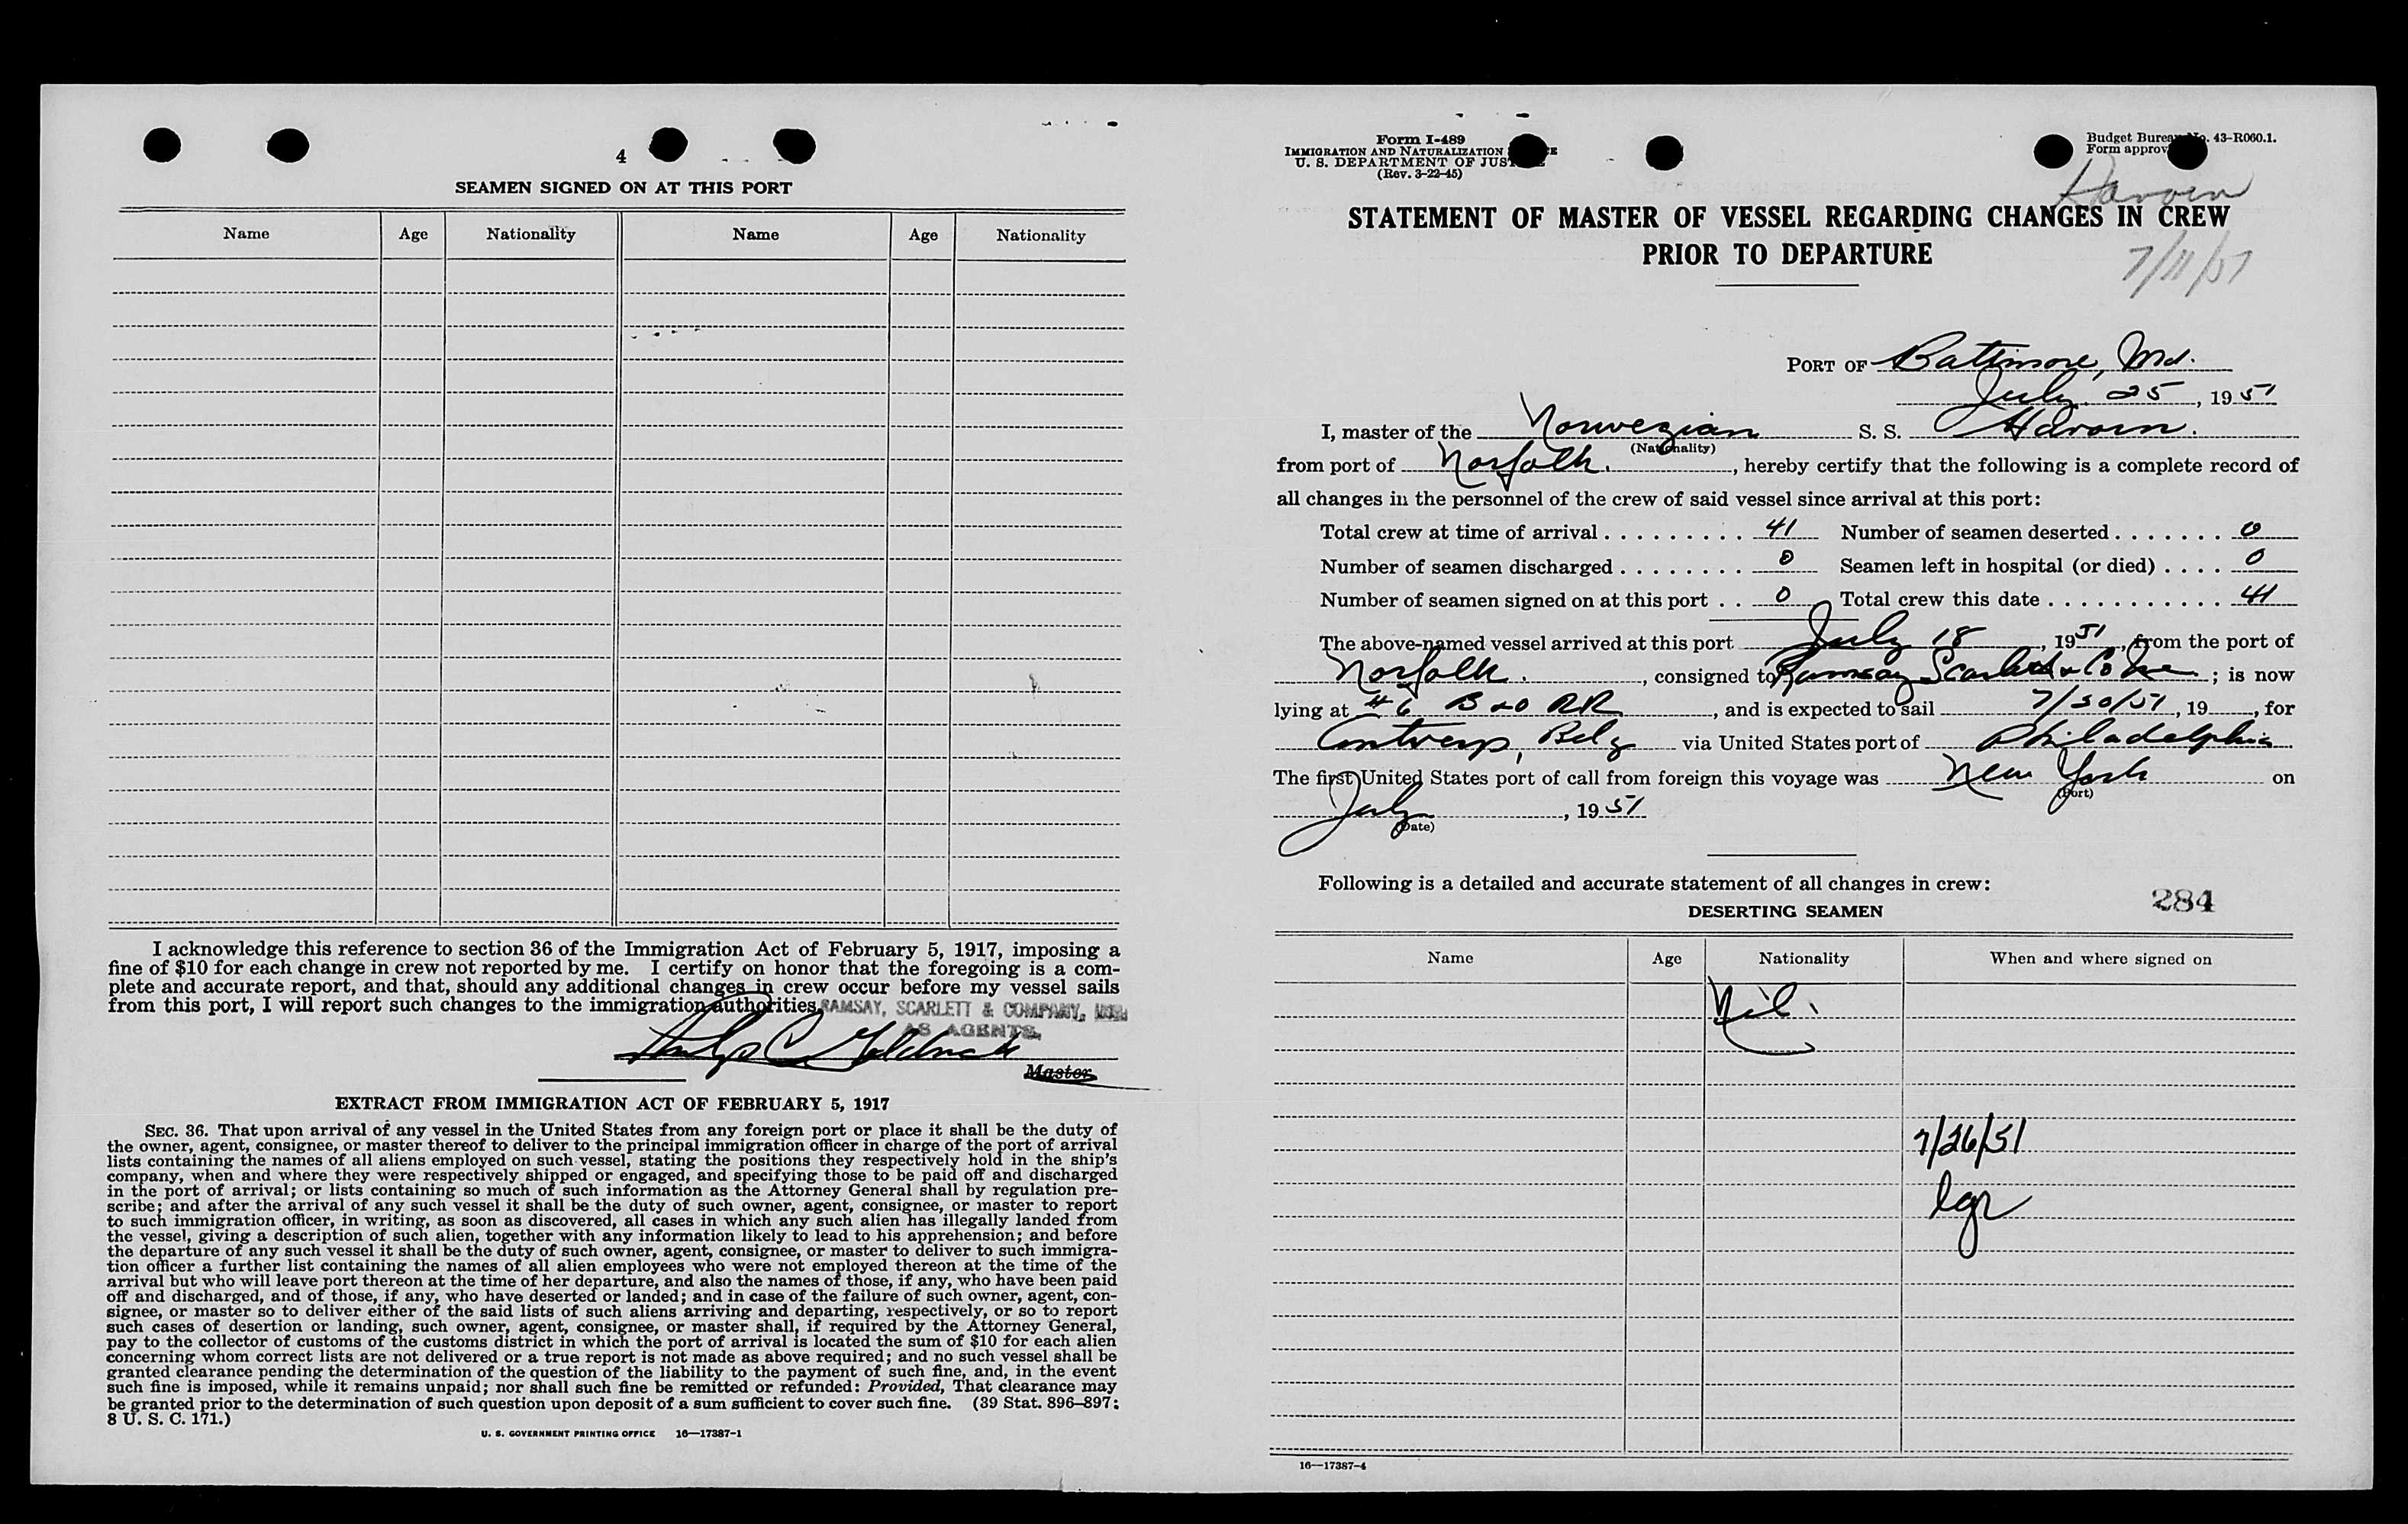 4
SEAMEN SIGNED ON AT THIS PORT
Name Age Nationality Name Age Nationality
I acknowledge this reference to section 36 of the Immigration Act of February 5, 1917, imposing a
fine of $10 for each change in crew not reported by me. I certify on honor that the foregoing is a com-
plete and accurate report, and that, should any additional changes in crew occur before my vessel sails
from this port, I will report such changes to the immigration authorities.
RAMSAY, SCARLETT & COMPANY, INC.
AS AGENTS.
Master
EXTRACT FROM IMMIGRATION ACT OF FEBRUARY 5, 1917
SEC. 36. That upon arrival of any vessel in the United States from any foreign port or place it shall be the duty of
the owner, agent, consignee, or master thereof to deliver to the principal immigration officer in charge of the port of arrival
lists containing the names of all aliens employed on such vessel, stating the positions they respectively hold in the ship's
company, when and where they were respectively shipped or engaged, and specifying those to be paid off and discharged
in the port of arrival; or lists containing so much of such information as the Attorney General shall by regulation pre-
scribe; and after the arrival of any such vessel it shall be the duty of such owner, agent, consignee, or master to report
to such immigration officer, in writing, as soon as discovered, all cases in which any such alien has illegally landed from
the vessel, giving a description of such alien, together with any information likely to lead to his apprehension; and before
the departure of any such vessel it shall be the duty of such owner, agent, consignee, or master to deliver to such immigra-
tion officer a further list containing the names of all alien employees who were not employed thereon at the time of the
arrival but who will leave port thereon at the time of her departure, and also the names of those, if any, who have been paid
off and discharged, and of those, if any, who have deserted or landed; and in case of the failure of such owner, agent, con-
signee, or master so to deliver either of the said lists of such aliens arriving and departing, respectively, or so to report
such cases of desertion or landing, such owner, agent, consignee, or master shall, if required by the Attorney General,
pay to the collector of customs of the customs district in which the port of arrival is located the sum of $10 for each alien
concerning whom correct lists are not delivered or a true report is not made as above required; and no such vessel shall be
granted clearance pending the determination of the question of the liability to the payment of such fine, and, in the event
such fine is imposed, while it remains unpaid; nor shall such fine be remitted or refunded: Provided, That clearance may
be granted prior to the determination of such question upon deposit of a sum sufficient to cover such fine. (39 Stat. 896–897;
8 U. S. C. 171.)
U. S. GOVERNMENT PRINTING OFFICE 16—17387-1
Form I-489
IMMIGRATION AND NATURALIZATION
U. S. DEPARTMENT OF JUSTICE
(Rev. 3-22-45)
Budget Bureau No. 43-R060.1.
Form approved
STATEMENT OF MASTER OF VESSEL REGARDING CHANGES IN CREW
PRIOR TO DEPARTURE
7/11/51
PORT OF Baltimore, Md.
July 25, 1951
I, master of the Norwegian S. S.
(Nationality)
from port of Norfolk., hereby certify that the following is a complete record of
all changes in the personnel of the crew of said vessel since arrival at this port:
Total crew at time of arrival . . . . . . . . . 41 Number of seamen deserted . . . . . . . 0
Number of seamen discharged . . . . . . . . 0 Seamen left in hospital (or died) . . . . 0
Number of seamen signed on at this port . . 0 Total crew this date . . . . . . . . . . . 41
The above-named vessel arrived at this port July 18, 1951, from the port of
Norfolk., consigned to Ramsay Scarlett & Co Inc; is now
lying at #6 B & O RR, and is expected to sail 7/30/51, 19, for
Antwerp, Belg via United States port of Philadelphia
The first United States port of call from foreign this voyage was New York on
(Port)
July, 1951
(Date)
Following is a detailed and accurate statement of all changes in crew:
284
DESERTING SEAMEN
Name Age Nationality When and where signed on
Nil.
7/26/51
lgr
16—17387-4